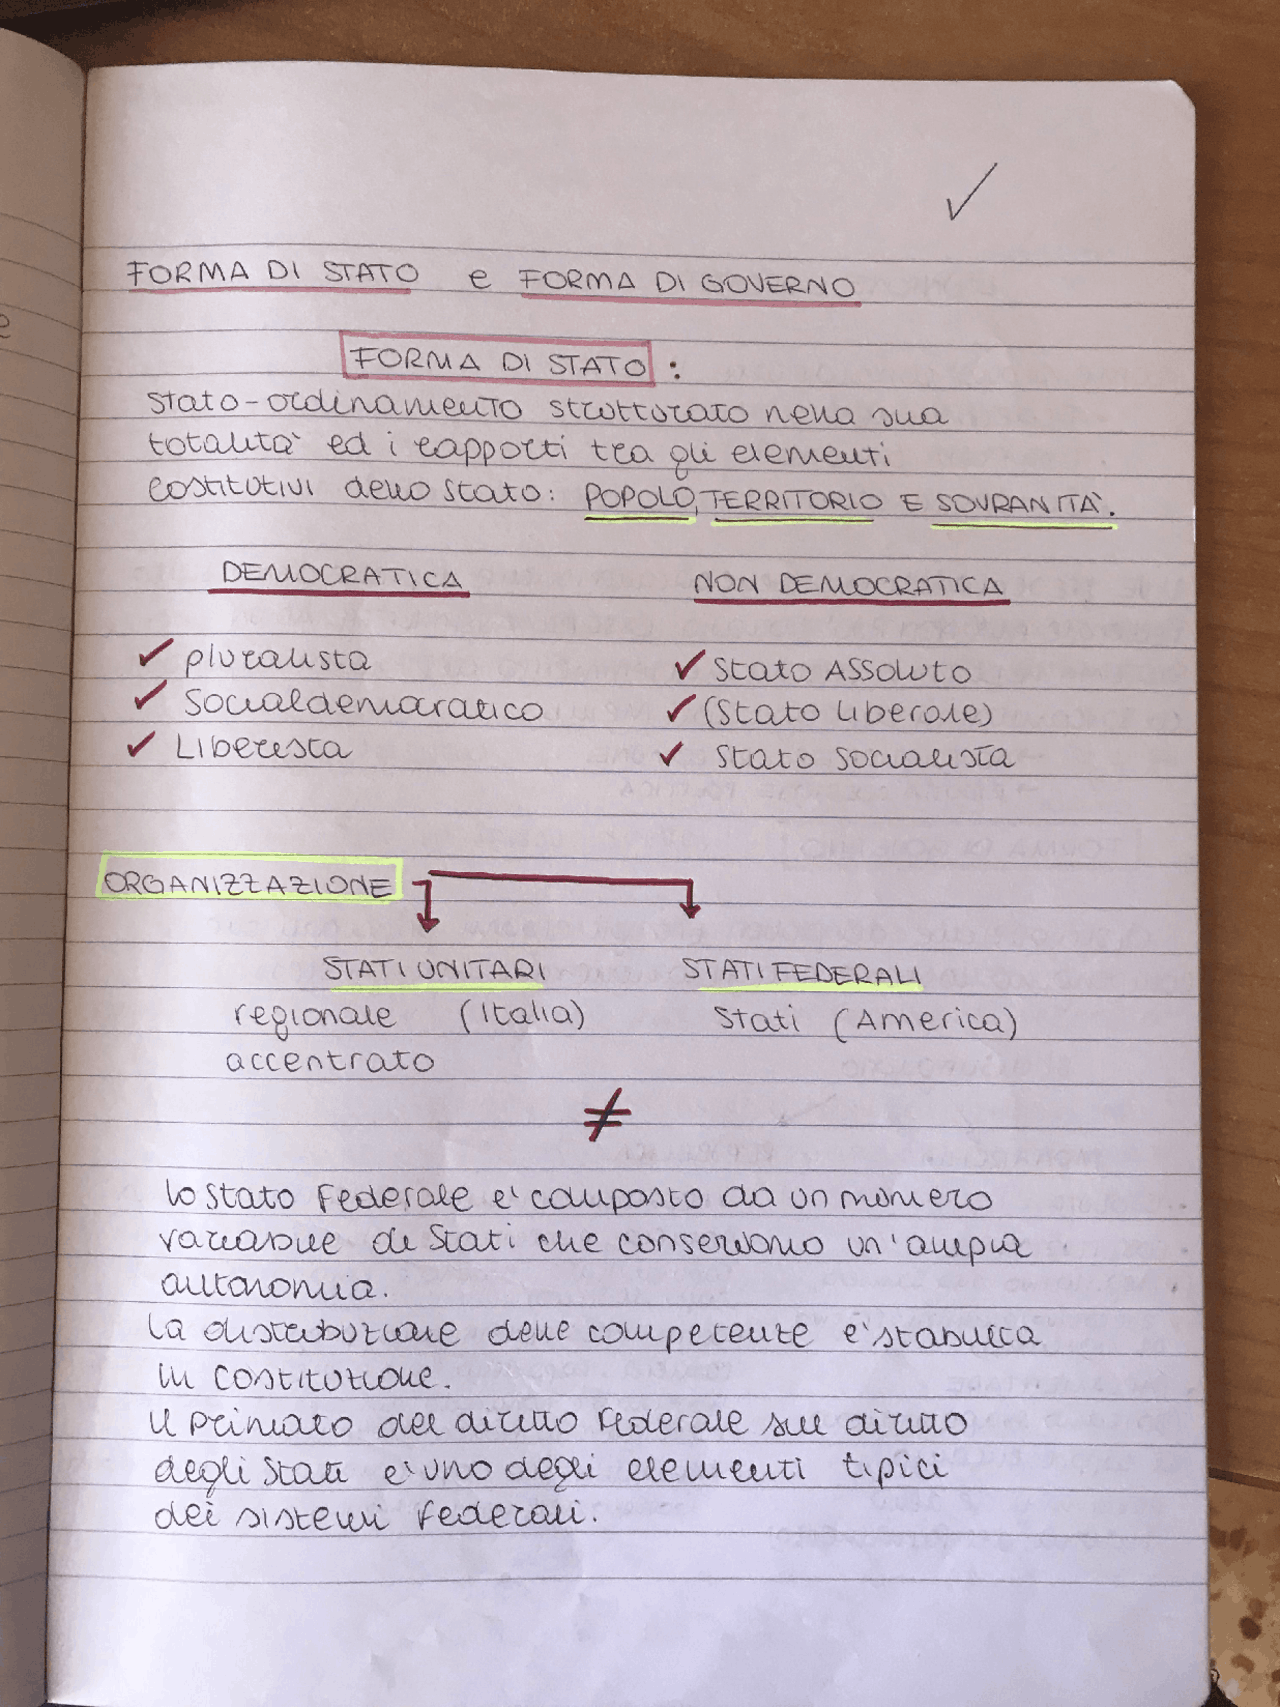 FORMA DI STATO e FORMA DI GOVERNO
FORMA DI STATO :
Stato-ordinamento strutturato nella sua
totalità ed i rapporti tra gli elementi
costitutivi dello Stato: POPOLO, TERRITORIO E SOVRANITÀ.
DEMOCRATICA NON DEMOCRATICA
✓ pluralista ✓ Stato ASSoluto
✓ Socialdemocratico ✓ (Stato liberale)
✓ Liberista ✓ Stato Socialista
ORGANIZZAZIONE
STATI UNITARI STATI FEDERALI
regionale (Italia) Stati (America)
accentrato
≠
lo Stato Federale è composto da un numero
variabile di Stati che conservano un'ampia
autonomia.
La distribuzione delle competenze è stabilita
in Costituzione.
Il primato del diritto Federale sul diritto
degli Stati è uno degli elementi tipici
dei sistemi Federali.